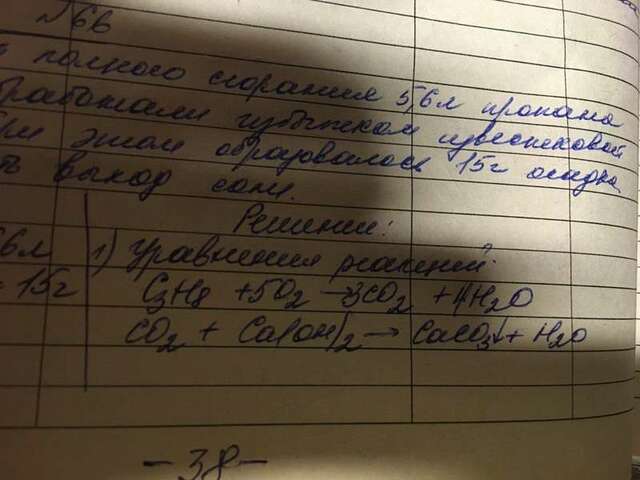 №66
полного сгорания 5,6л пропана
обработали избытком известковой
При этом образовалось 15г осадка.
выход соли.
Решение:
6л 1) Уравнения реакций:
= 15г C₃H₈ + 5O₂ → 3CO₂ + 4H₂O
CO₂ + Ca(OH)₂ → CaCO₃↓ + H₂O
- 38 -